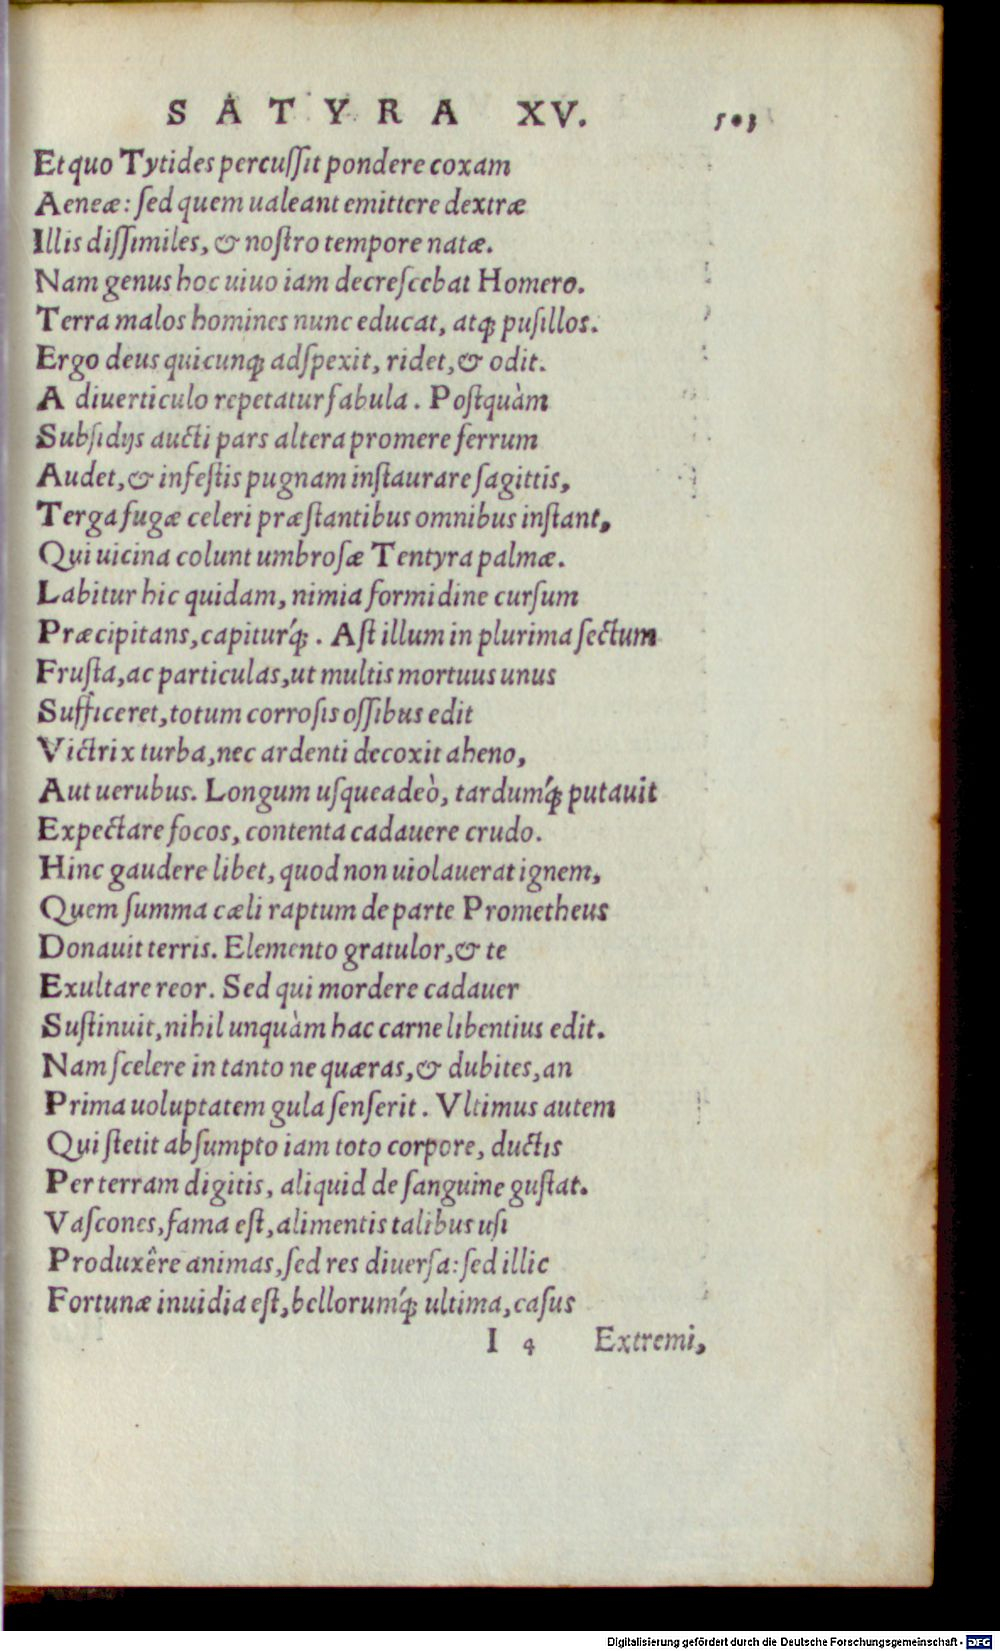 SATYRA XV. 503
Et quo Tytides percuſſit pondere coxam
Aeneæ: ſed quem ualeant emittere dextræ
Illis diſſimiles, & noſtro tempore natæ.
Nam genus hoc uiuo iam decreſcebat Homero.
Terra malos homines nunc educat, atq; puſillos.
Ergo deus quicunq; adſpexit, ridet, & odit.
A diuerticulo repetatur fabula. Poſtquàm
Subſidijs aucti pars altera promere ferrum
Audet, & infeſtis pugnam inſtaurare ſagittis,
Terga fugæ celeri præſtantibus omnibus inſtant,
Qui uicina colunt umbroſæ Tentyra palmæ.
Labitur hic quidam, nimia formidine curſum
Præcipitans, capitur´q;. Aſt illum in plurima ſectum
Fruſta, ac particulas, ut multis mortuus unus
Sufficeret, totum corroſis oſſibus edit
Victrix turba, nec ardenti decoxit aheno,
Aut uerubus. Longum uſqueadeò, tardum´q; putauit
Expectare focos, contenta cadauere crudo.
Hinc gaudere libet, quod non uiolauerat ignem,
Quem ſumma cæli raptum de parte Prometheus
Donauit terris. Elemento gratulor, & te
Exultare reor. Sed qui mordere cadauer
Suſtinuit, nihil unquàm hac carne libentius edit.
Nam ſcelere in tanto ne quæras, & dubites, an
Prima uoluptatem gula ſenſerit. Vltimus autem
Qui ſtetit abſumpto iam toto corpore, ductis
Per terram digitis, aliquid de ſanguine guſtat.
Vaſcones, fama eſt, alimentis talibus uſi
Produxêre animas, ſed res diuerſa: ſed illic
Fortunæ inuidia eſt, bellorum´q; ultima, caſus
I 4 Extremi,
Digitalisierung gefördert durch die Deutsche Forschungsgemeinschaft - DFG